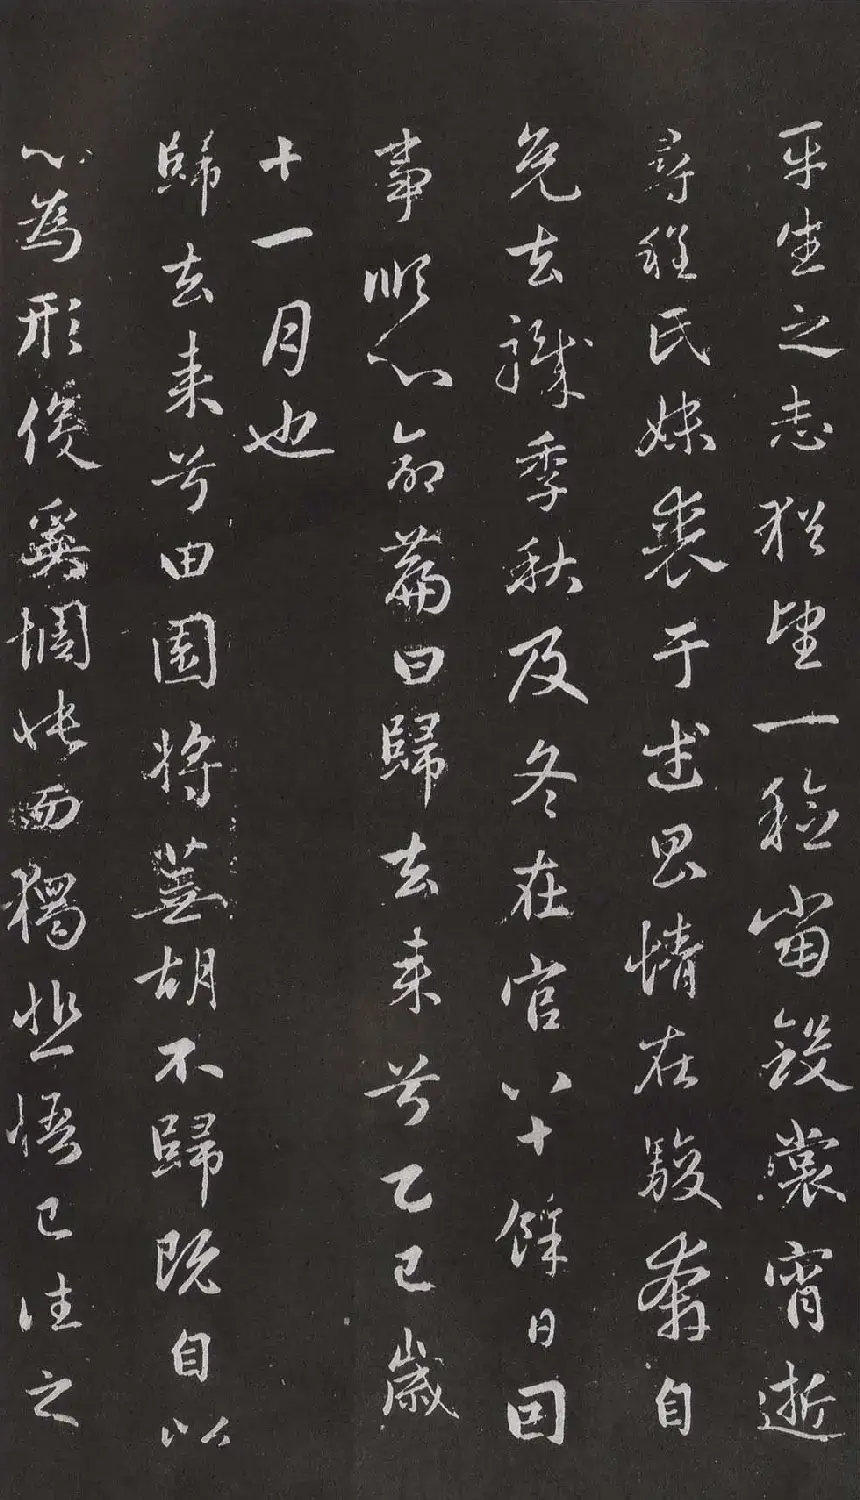 平生之志猶望一稔當斂裳宵逝
尋程氏妹喪于武昌情在駿奔自
免去職季秋及冬在官八十餘日因
事順心命篇曰歸去来兮乙巳歲
十一月也
歸去来兮田園將蕪胡不歸既自以
心為形役奚惆悵而獨悲悟已往之